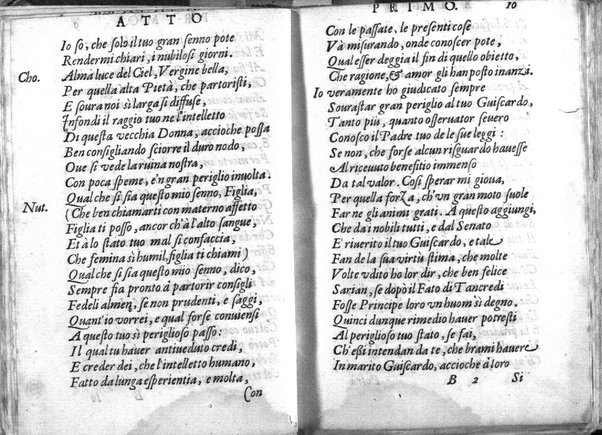 ATTO
Io so, che solo il tuo gran senno pote
Rendermi chiari, i nubilosi giorni.
Cho. Alma luce del Ciel, Vergine bella,
Per quella alta Pietà, che partoristi,
E soura noi sì larga si diffuse,
Infondi il raggio tuo ne l'intelletto
Di questa vecchia Donna, accioche possa
Ben consigliando sciorre il duro nodo,
Oue si vede la ruina nostra,
Con poca speme, e'n gran periglio inuolta.
Nut. Qual che si sia questo mio senno, Figlia,
(Che ben chiamarti con materno affetto
Figlia ti posso, ancor ch'à l'alto sangue,
Et à lo stato tuo mal si confaccia,
Che femina sì humil, figlia ti chiami)
Qual che si sia questo mio senno, dico,
Sempre fia pronto à partorir consigli
Fedeli almen, se non prudenti, e saggi,
Quant'io vorrei, e qual forse conuiensi
A questo tuo sì periglioso passo:
Il qual tu hauer antiueduto credi,
E creder dei, che l'intelletto humano,
Fatto da lunga esperientia, e molta,
Con
PRIMO. 10
Con le passate, le presenti cose
Và misurando, onde conoscer pote,
Qual esser deggia il fin di quello obietto,
Che ragione, & amor gli han posto inanzi.
Io veramente ho giudicato sempre
Sourastar gran periglio al tuo Guiscardo,
Tanto più, quanto osseruator seuero
Conosco il Padre tuo de le sue leggi:
Se non, che forse alcun risguardo hauesse
Al riceuuto benefitio immenso
Da tal valor. Così sperar mi gioua,
Per quella forza, ch'v'n gran moto suole
Far ne gli animi grati. A questo aggiungi,
Che da i nobili tutti, e dal Senato
E riuerito il tuo Guiscardo, e tale
Fan de la sua virtù stima, che molte
Volte vdito ho lor dir, che ben felice
Sarian, se dopò il Fato di Tancredi
Fosse Principe loro vn huom sì degno.
Quinci dunque rimedio hauer potresti
Al periglioso tuo stato, se fai,
Ch'essi intendan da te, che brami hauere
In marito Guiscardo, accioche à loro
B 2 Si